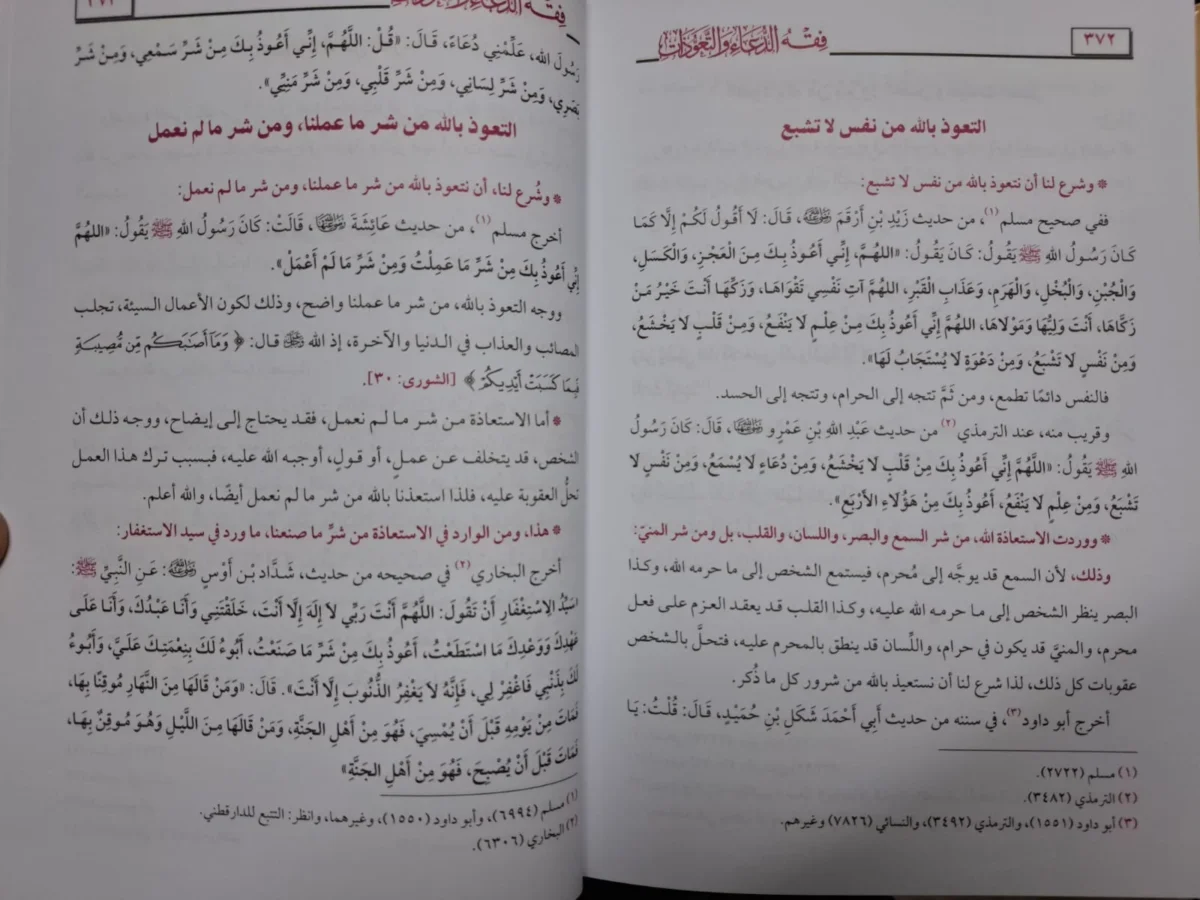 ٣٧٢
فِقْهُ الدُّعَاءِ وَالتَّعَوُّذَاتِ
التعوذ بالله من نفس لا تشبع
* وشرع لنا أن نتعوذ بالله من نفس لا تشبع:
ففي صحيح مسلم(١)، من حديث زَيْدِ بْنِ أَرْقَمَ رضي الله عنه، قَالَ: لَا أَقُولُ لَكُمْ إِلَّا كَمَا
كَانَ رَسُولُ اللهِ ﷺ يَقُولُ: كَانَ يَقُولُ: «اللهُمَّ، إِنِّي أَعُوذُ بِكَ مِنَ الْعَجْزِ، وَالْكَسَلِ،
وَالْجُبْنِ، وَالْبُخْلِ، وَالْهَرَمِ، وَعَذَابِ الْقَبْرِ، اللهُمَّ آتِ نَفْسِي تَقْوَاهَا، وَزَكِّهَا أَنْتَ خَيْرُ مَنْ
زَكَّاهَا، أَنْتَ وَلِيُّهَا وَمَوْلَاهَا، اللهُمَّ إِنِّي أَعُوذُ بِكَ مِنْ عِلْمٍ لَا يَنْفَعُ، وَمِنْ قَلْبٍ لَا يَخْشَعُ،
وَمِنْ نَفْسٍ لَا تَشْبَعُ، وَمِنْ دَعْوَةٍ لَا يُسْتَجَابُ لَهَا».
فالنفس دائمًا تطمع، ومن ثَمَّ تتجه إلى الحرام، وتتجه إلى الحسد.
وقريب منه، عند الترمذي(٢) من حديث عَبْدِ اللهِ بْنِ عَمْرٍو رضي الله عنه، قَالَ: كَانَ رَسُولُ
اللهِ ﷺ يَقُولُ: «اللَّهُمَّ إِنِّي أَعُوذُ بِكَ مِنْ قَلْبٍ لَا يَخْشَعُ، وَمِنْ دُعَاءٍ لَا يُسْمَعُ، وَمِنْ نَفْسٍ لَا
تَشْبَعُ، وَمِنْ عِلْمٍ لَا يَنْفَعُ، أَعُوذُ بِكَ مِنْ هَؤُلَاءِ الأَرْبَعِ».
* ووردت الاستعاذة الله، من شر السمع والبصر، واللسان، والقلب، بل ومن شر المنيّ:
وذلك، لأن السمع قد يوجَّه إلى مُحرم، فيستمع الشخص إلى ما حرمه الله، وكذا
البصر ينظر الشخص إلى ما حرمه الله عليه، وكذا القلب قد يعقد العزم على فعل
محرم، والمنيَّ قد يكون في حرام، واللِّسان قد ينطق بالمحرم عليه، فتحلَّ بالشخص
عقوبات كل ذلك، لذا شرع لنا أن نستعيذ بالله من شرور كل ما ذُكر.
أخرج أبو داود(٣)، في سننه من حديث أَبِي أَحْمَدَ شَكَلِ بْنِ حُمَيْدٍ، قَالَ: قُلْتُ: يَا
(١) مسلم (٢٧٢٢).
(٢) الترمذي (٣٤٨٢).
(٣) أبو داود (١٥٥١)، والترمذي (٣٤٩٢)، والنسائي (٧٨٢٦) وغيرهم.
فِقْهُ الدُّعَاءِ
رَسُولَ الله، عَلِّمْنِي دُعَاءً، قَالَ: «قُلْ: اللَّهُمَّ، إِنِّي أَعُوذُ بِكَ مِنْ شَرِّ سَمْعِي، وَمِنْ شَرِّ
بَصَرِي، وَمِنْ شَرِّ لِسَانِي، وَمِنْ شَرِّ قَلْبِي، وَمِنْ شَرِّ مَنِيِّي».
التعوذ بالله من شر ما عملنا، ومن شر ما لم نعمل
* وشُرع لنا، أن نتعوذ بالله من شر ما عملنا، ومن شر ما لم نعمل:
أخرج مسلم(١)، من حديث عَائِشَةَ رضي الله عنها، قَالَتْ: كَانَ رَسُولُ اللهِ ﷺ يَقُولُ: «اللهُمَّ
إِنِّي أَعُوذُ بِكَ مِنْ شَرِّ مَا عَمِلْتُ وَمِنْ شَرِّ مَا لَمْ أَعْمَلْ».
ووجه التعوذ بالله، من شر ما عملنا واضح، وذلك لكون الأعمال السيئة، تجلب
المصائب والعذاب في الدنيا والآخرة، إذ الله ﷻ قال: ﴿ وَمَآ أَصَٰبَكُم مِّن مُّصِيبَةٍ
فَبِمَا كَسَبَتْ أَيْدِيكُمْ ﴾ [الشورى: ٣٠].
* أما الاستعاذة من شر ما لم نعمل، فقد يحتاج إلى إيضاح، ووجه ذلك أن
الشخص، قد يتخلف عن عملٍ، أو قولٍ، أوجبه الله عليه، فبسبب ترك هذا العمل
تحلُّ العقوبة عليه، فلذا استعذنا بالله من شر ما لم نعمل أيضًا، والله أعلم.
* هذا، ومن الوارد في الاستعاذة من شرِّ ما صنعنا، ما ورد في سيد الاستغفار:
أخرج البخاري(٢) في صحيحه من حديث، شَدَّادِ بْنِ أَوْسٍ رضي الله عنه: عَنِ النَّبِيِّ ﷺ:
«سَيِّدُ الِاسْتِغْفَارِ أَنْ تَقُولَ: اللَّهُمَّ أَنْتَ رَبِّي لَا إِلَهَ إِلَّا أَنْتَ، خَلَقْتَنِي وَأَنَا عَبْدُكَ، وَأَنَا عَلَى
عَهْدِكَ وَوَعْدِكَ مَا اسْتَطَعْتُ، أَعُوذُ بِكَ مِنْ شَرِّ مَا صَنَعْتُ، أَبُوءُ لَكَ بِنِعْمَتِكَ عَلَيَّ، وَأَبُوءُ
لَكَ بِذَنْبِي فَاغْفِرْ لِي، فَإِنَّهُ لَا يَغْفِرُ الذُّنُوبَ إِلَّا أَنْتَ». قَالَ: «وَمَنْ قَالَهَا مِنَ النَّهَارِ مُوقِنًا بِهَا،
فَمَاتَ مِنْ يَوْمِهِ قَبْلَ أَنْ يُمْسِيَ، فَهُوَ مِنْ أَهْلِ الجَنَّةِ، وَمَنْ قَالَهَا مِنَ اللَّيْلِ وَهُوَ مُوقِنٌ بِهَا،
فَمَاتَ قَبْلَ أَنْ يُصْبِحَ، فَهُوَ مِنْ أَهْلِ الجَنَّةِ»
(١) مسلم (٦٩٩٤)، وأبو داود (١٥٥٠)، وغيرهما، وانظر: التتبع للدارقطني.
(٢) البخاري (٦٣٠٦).